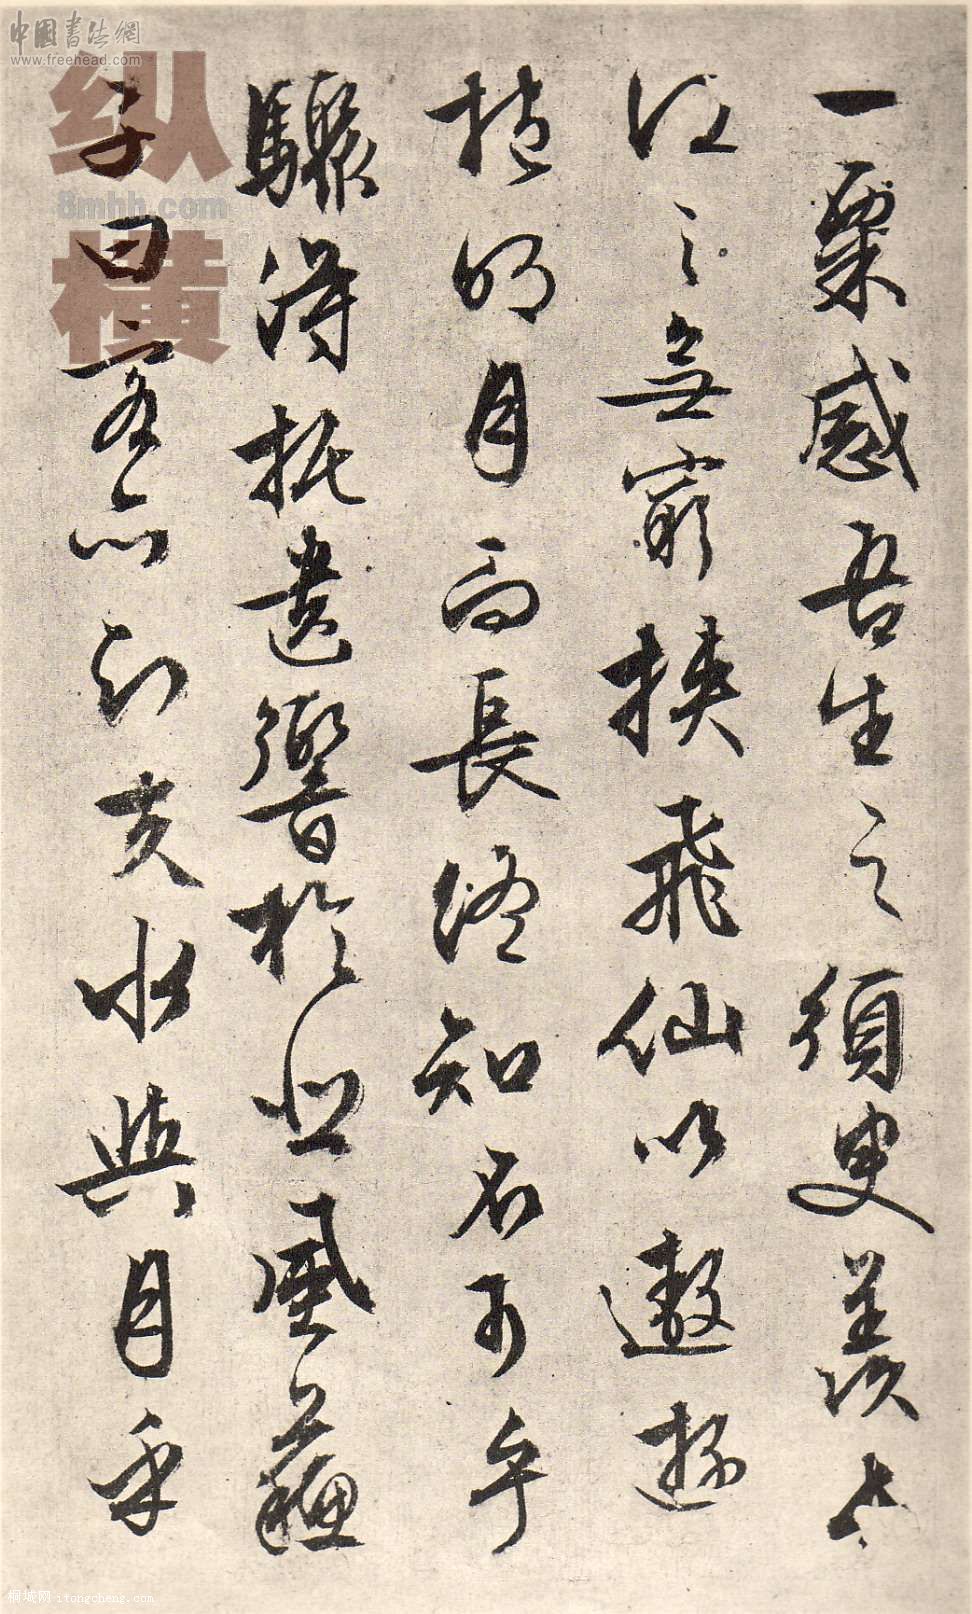 一粟感吾生之須臾羨長
江之無窮挾飛仙以遨遊
抱明月而長終知不可乎
驟得托遺響於悲風蘇
子曰客亦知夫水與月乎
中国書法網
www.freehead.com
纵横
8mhh.com
桐城网 itongcheng.com